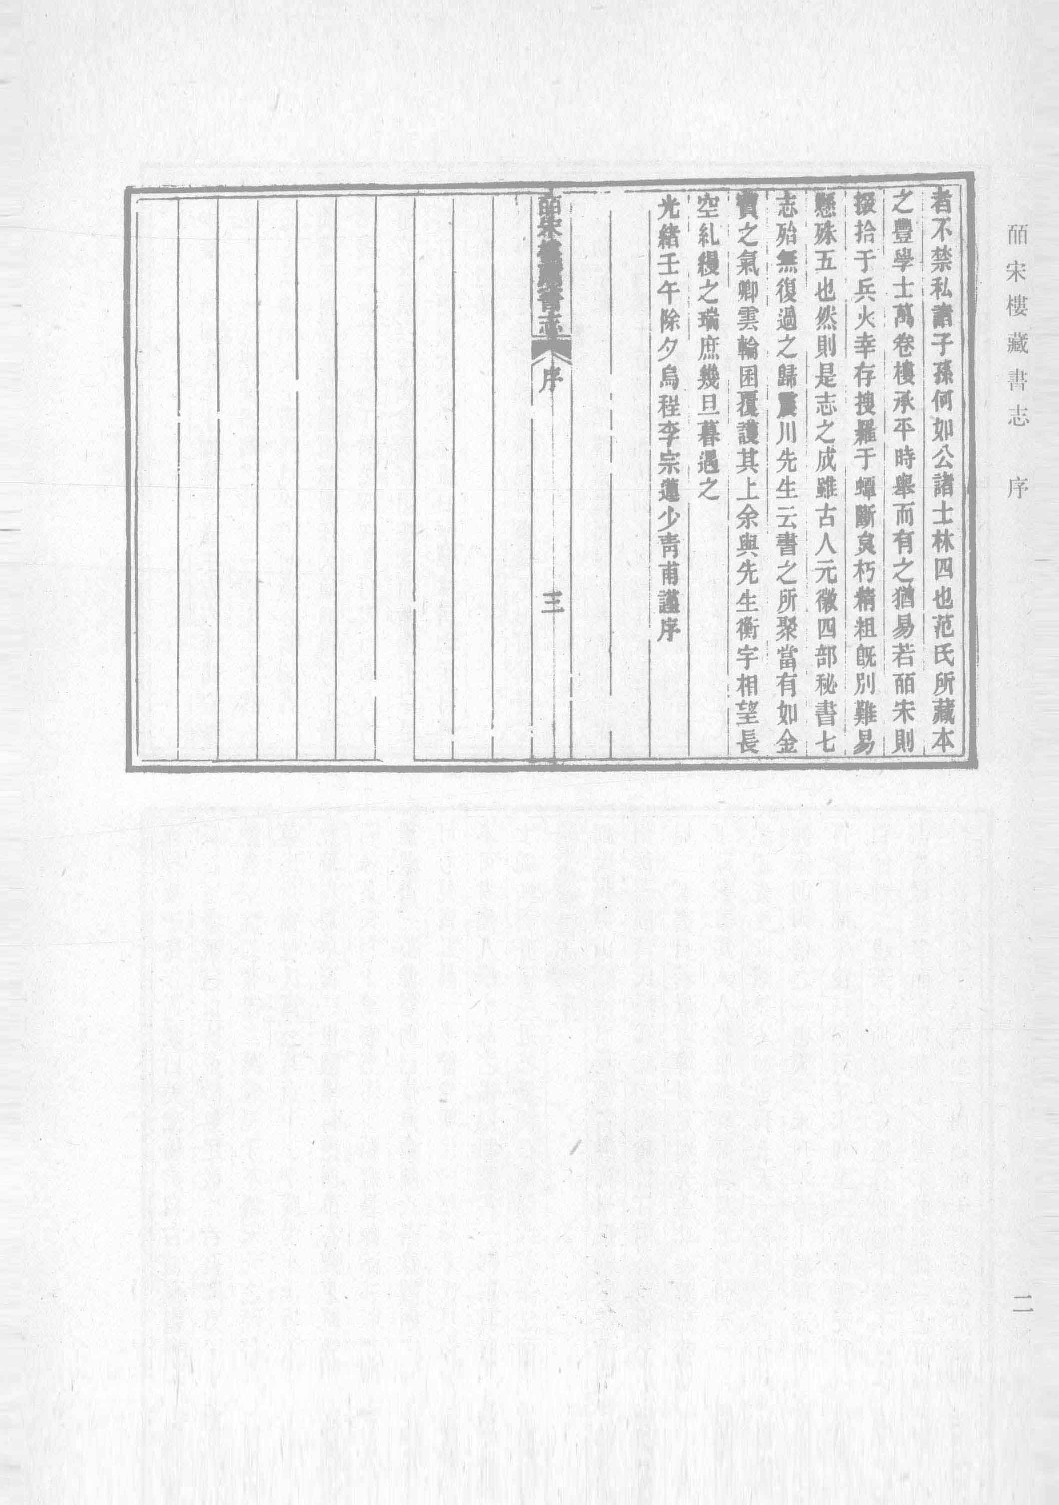 皕宋樓藏書志　序
者不禁私諸子孫何如公諸士林四也范氏所藏本
之豐學士萬卷樓承平時舉而有之猶易若皕宋則
掇拾于兵火幸存搜羅于蟫斷炱朽精粗旣別難易
懸殊五也然則是志之成雖古人元徽四部秘書七
志殆無復過之歸震川先生云書之所聚當有如金
寶之氣卿雲輪囷覆護其上余與先生衡宇相望長
空糺縵之瑞庶幾旦暮遇之
光緒壬午除夕烏程李宗蓮少青甫謹序
皕宋樓藏書志　序　三
二